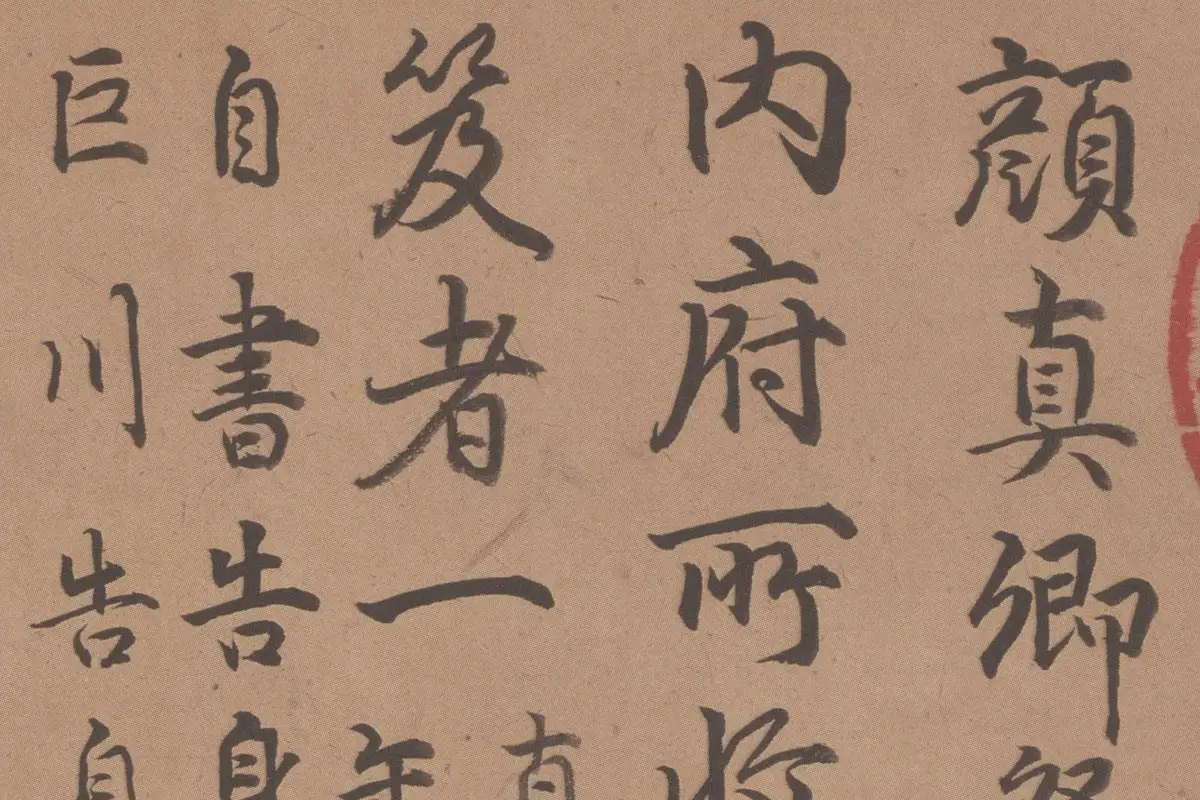 顔真卿
内府所
笈者一
自書告身
巨川告